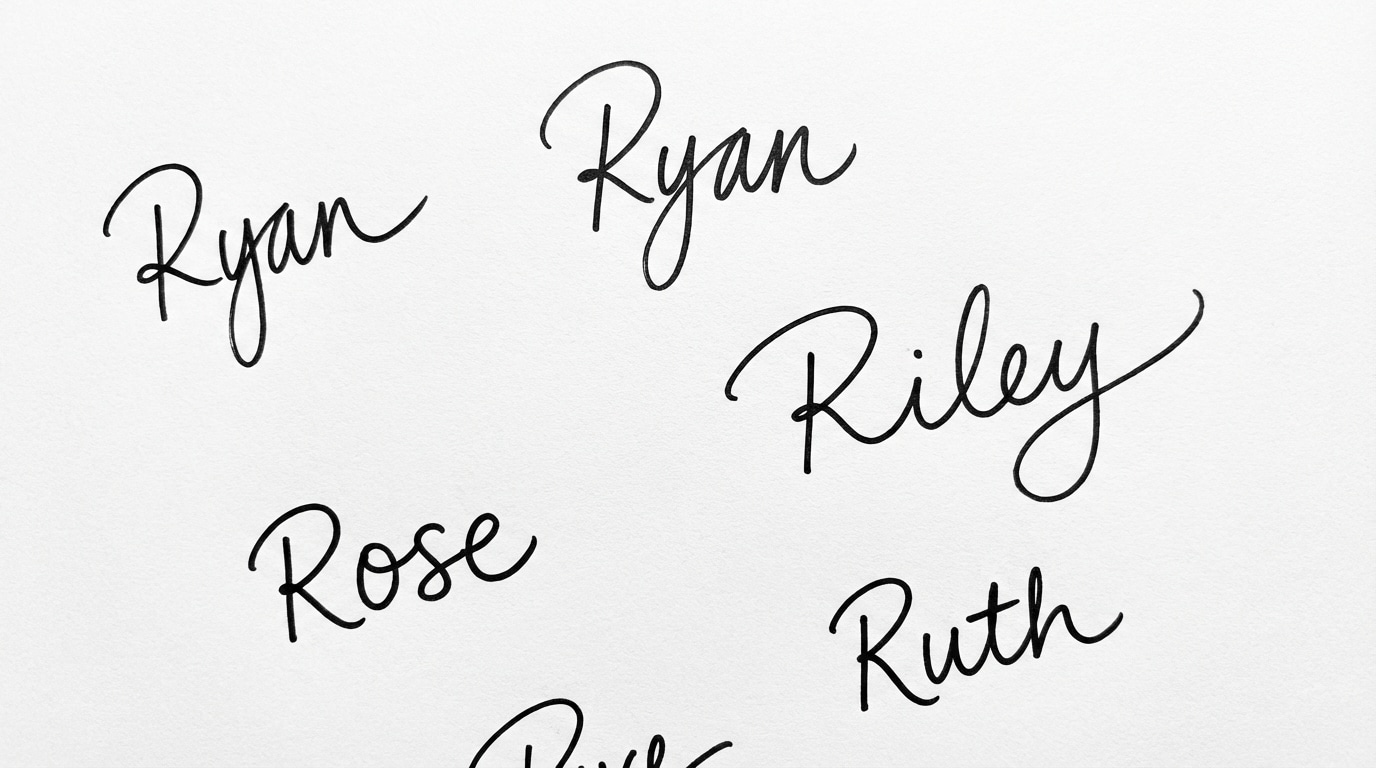 Ryan
Ryan
Riley
Rose
Ruth